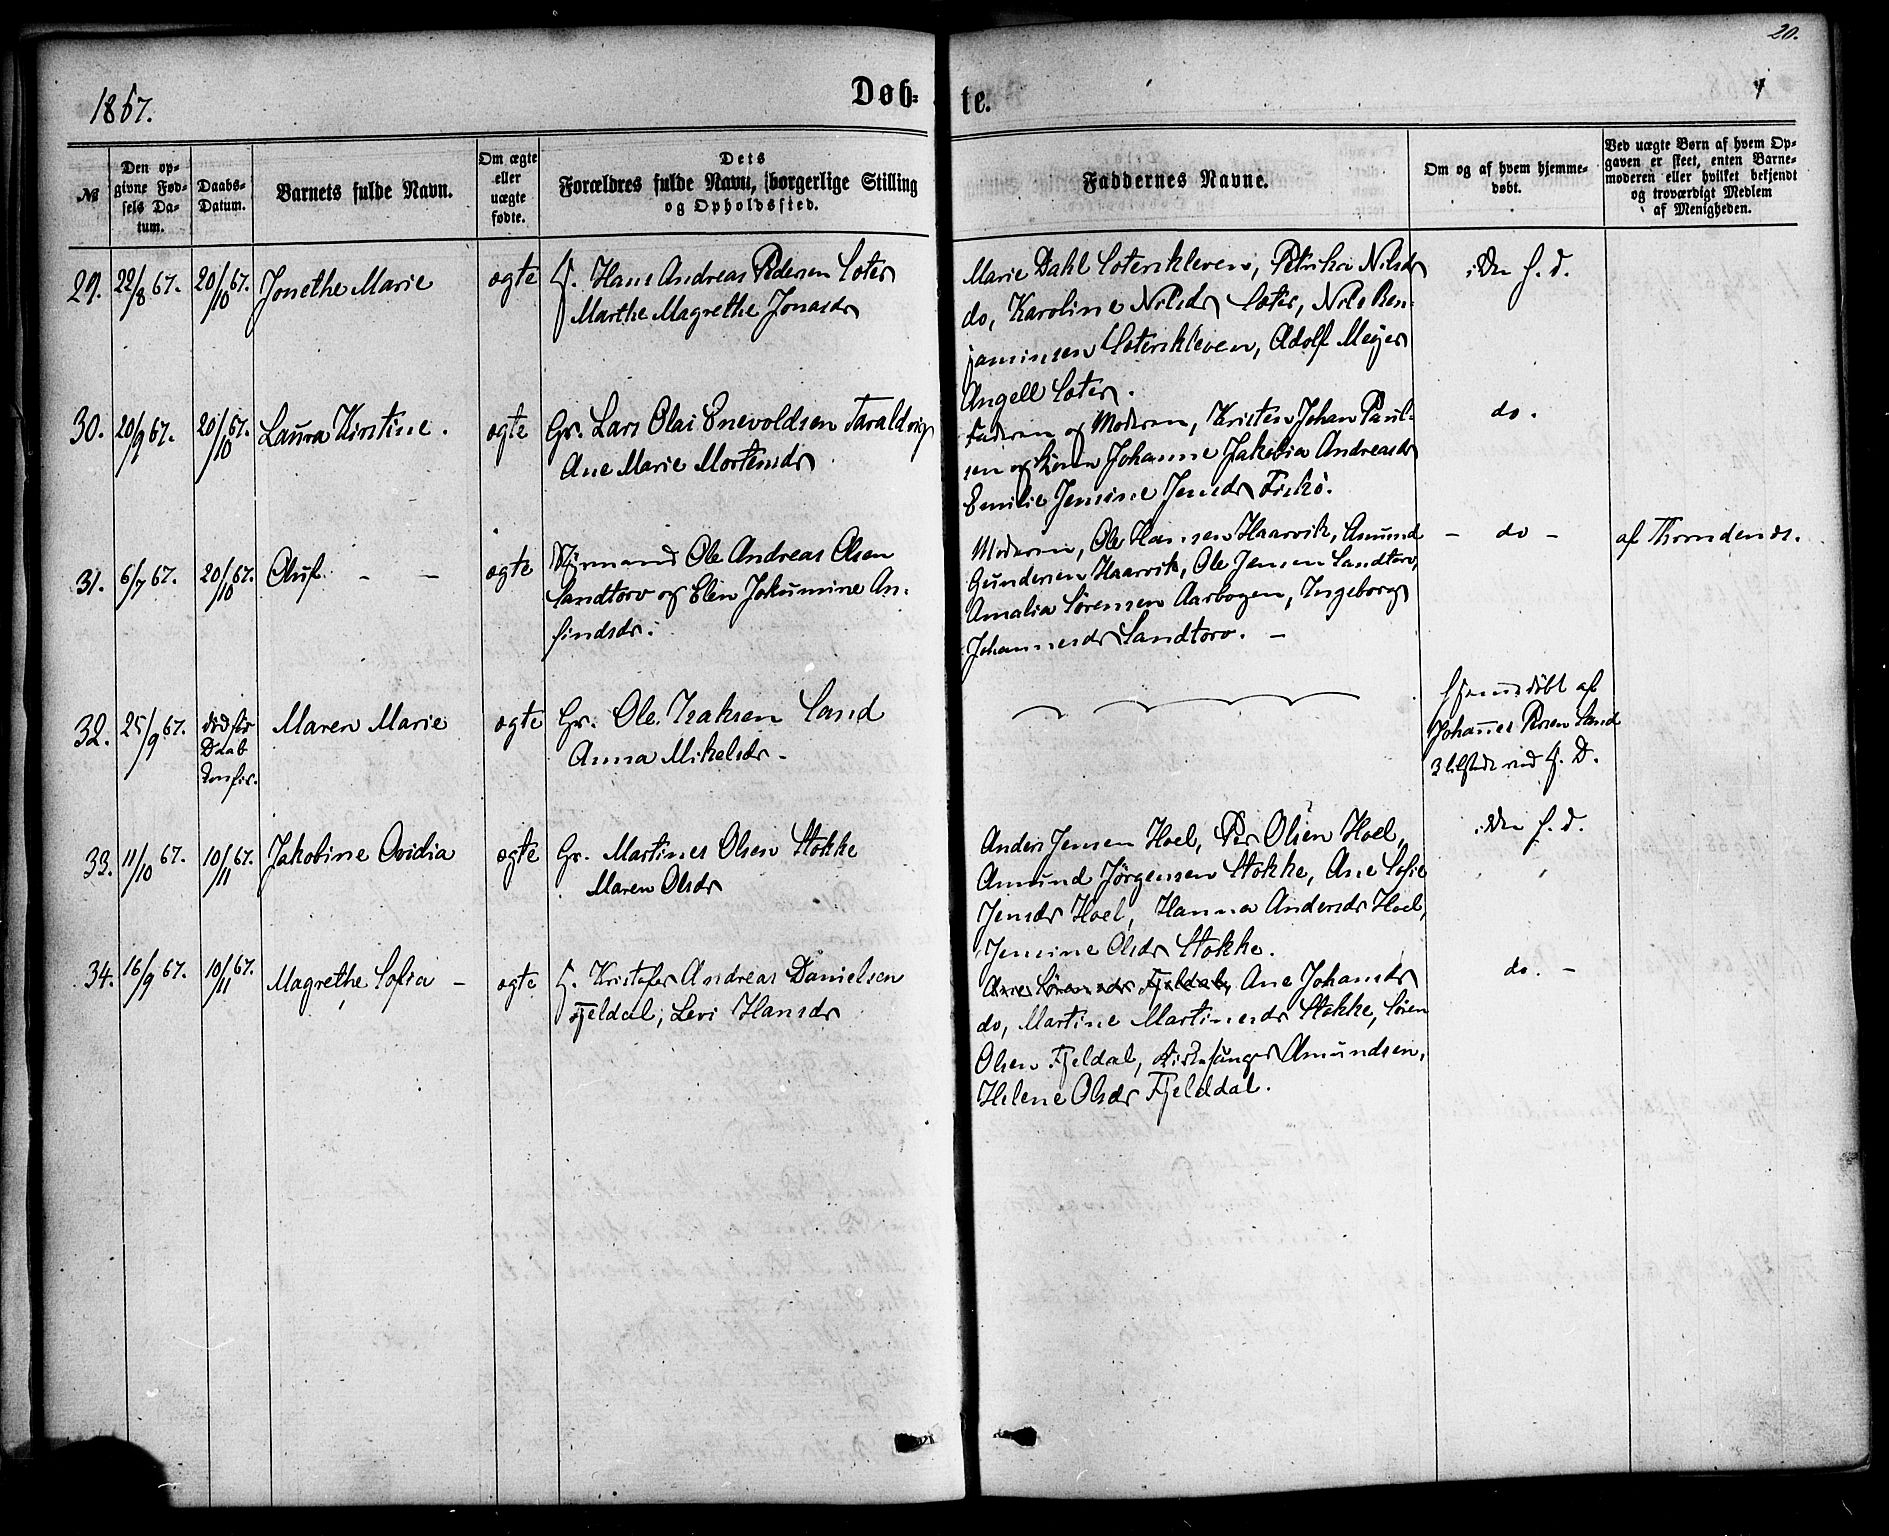 20.
1867.
Døb-
te.
№
Den op-
givne Fød-
sels Da-
tum.
Daabs-
Datum.
Barnets fulde Navn.
Om ægte
eller
uægte
fødte.
Dets
Forældres fulde Navn, borgerlige Stilling
og Opholdssted.
Faddernes Navne.
Om og af hvem hjemme-
døbt.
Ved uægte Børn af hvem Op-
gaven er skeet, enten Barne-
moderen eller hvilket bekjendt
og troværdigt Medlem
af Menigheden.
29. 22/8 67. 20/10 67. Jonethe Marie ogte F. Hans Andreas Pedersen Soter
Marthe Magrethe Jonasdr
Marie Dahl Soterskleven, Petrika Nilsdr
do, Karoline Nilsdr Soter, Nils Ben-
jaminsen Soterskleven, Adolf Meyer
Angell Soter.
i Den f. d.
30. 20/9 67. 20/10 67. Laura Kirstine. ogte Gr. Lars Olai Enevoldsen Taraldvig
Ane Marie Mortensdr
Faderen og Moderen, Kristen Johan Paul-
sen og Kone Johanne Jakobia Andreasdr
Emilie Jensine Jensdr Fiskö.
do.
31. 6/7 67. 20/10 67. Oluf. – – ogte Styrmand Ole Andreas Olsen
Sandtorv og Elen Jokumine An-
findsdr.
Moderen, Ole Hansen Haarvik, Amund
Gundersen Haarvik, Ole Jensen Sandtorv,
Amalia Sørensen Aarbogen, Ingeborg
Johannesdr Sandtorv. –
– do – af Throndenes.
32. 25/9 67. død før
Daab
Maren Marie ogte Gr. Ole Isaksen Sand
Anna Mikelsdr –
Hjemmedöbt af
Johannes Persen Sand
F. D.
33. 11/10 67. 10/11 67. Jakobine Ovidia ogte Gr. Martines Olsen Stokke
Maren Olsdr
Anders Jensen Hoel, Per Olsen Hoel,
Amund Jörgensen Stokke, Ane Sofie
Jensdr Hoel, Hanna Andersdr Hoel,
Jensine Olsdr Stokke.
i Den f. d.
34. 16/9 67. 10/11 67. Magrethe Sofia – ogte F. Kristofer Andreas Danielsen
Fjeldal, Levi Hansdr
Ane Sörensdr Fjeldal, Ane Johansdr
do, Martine Martinesdr Stokke, Sören
Olsen Fjeldal, Kirkesanger Amundsen,
Helene Olsdr Fjelddal.
do. –